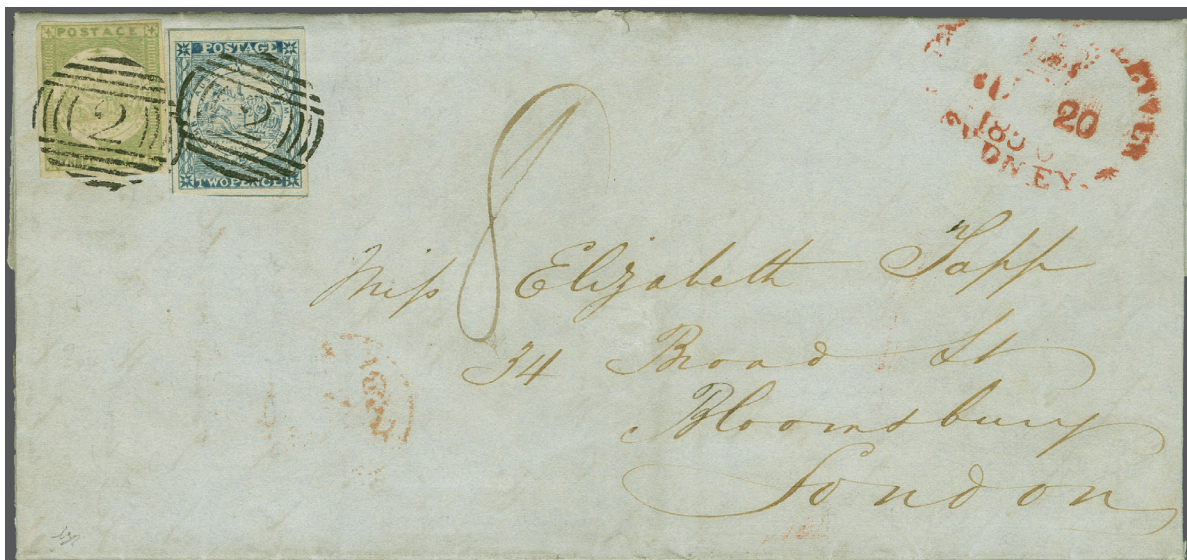 POSTAGE
2
POSTAGE
2
TWO PENCE
20
SYDNEY.
8
Miss Elizabeth Tapp
34 Broad St
Bloomsbury
London